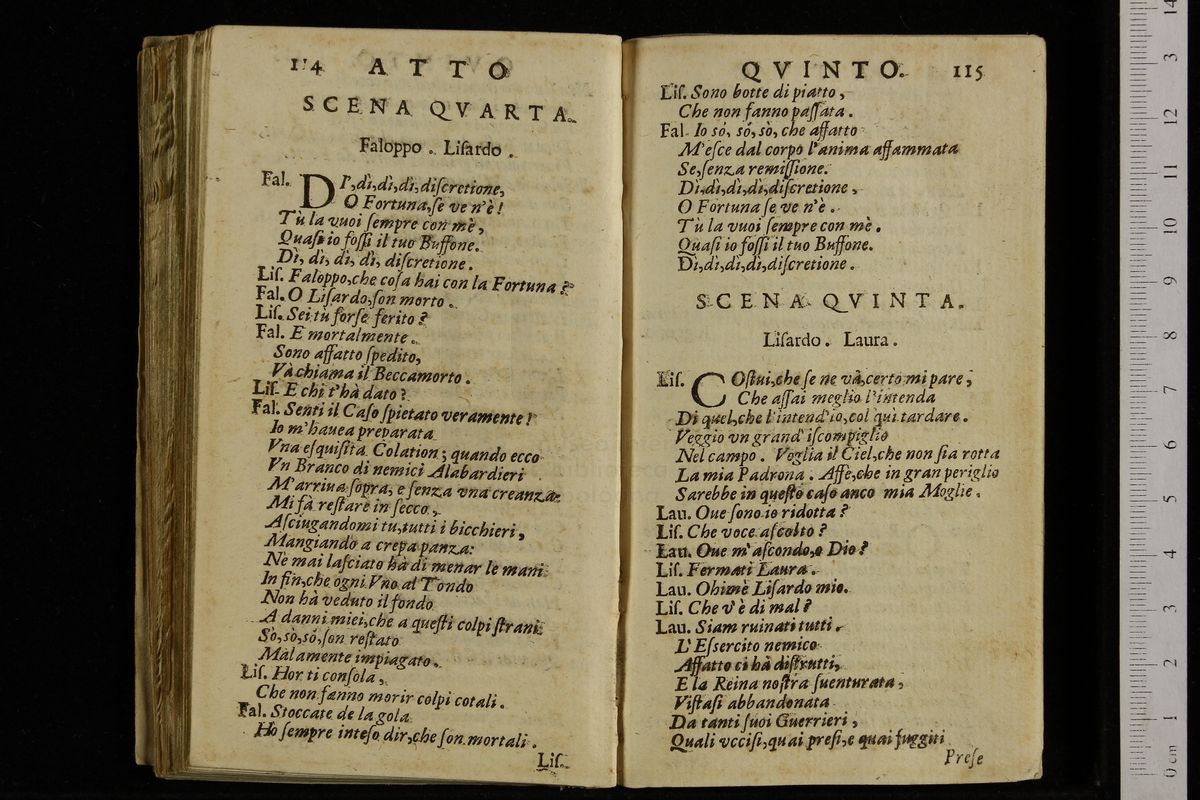 114 ATTO
SCENA QVARTA.
Faloppo. Liſardo.
Fal. DI',dì,dì,dì,diſcretione,
O Fortuna,ſe ve n'è!
Tù la vuoi ſempre con mè,
Quaſi io foſſi il tuo Buffone.
Dì, dì, dì, dì, diſcretione.
Liſ. Faloppo,che coſa hai con la Fortuna?
Fal. O Liſardo,ſon morto.
Liſ. Sei tù forſe ferito?
Fal. E mortalmente.
Sono affatto ſpedito,
Và chiama il Beccamorto.
Liſ. E chi t'hà dato?
Fal. Senti il Caſo ſpietato veramente!
Io m'hauea preparata
Vna eſquiſita Colation; quando ecco
Vn Branco di nemici Alabardieri
M'arriua ſopra, e ſenza vna creanza
Mi fà reſtare in ſecco,
Aſciugandomi tu,tutti i bicchieri,
Mangiando a crepa panza:
Nè mai laſciato hà di menar le mani
In fin,che ogni Vno al Tondo
Non hà veduto il fondo
A danni miei,che a queſti colpi ſtrani
Sò,sò,sò,ſon reſtato
Malamente impiagato.
Liſ. Hor ti conſola,
Che non fanno morir colpi cotali.
Fal. Stoccate de la gola
Hò ſempre inteſo dir,che ſon mortali.
Liſ.
QVINTO. 115
Liſ. Sono botte di piatto,
Che non fanno paſſata.
Fal. Io sò, sò,sò, che affatto
M'eſce dal corpo l'anima affammata
Se,ſenza remiſſione.
Dì,dì,dì,dì,diſcretione,
O Fortuna ſe ve n'è.
Tù la vuoi ſempre con mè.
Quaſi io foſſi il tuo Buffone.
Dì,dì,dì,dì,diſcretione.
SCENA QVINTA.
Liſardo. Laura.
Liſ. COſtui,che ſe ne và,certo mi pare,
Che aſſai meglio l'intenda
Di quel,che l'intend'io,col quì tardare.
Veggio vn grand' iſcompiglio
Nel campo. Voglia il Ciel,che non ſia rotta
La mia Padrona. Affè,che in gran periglio
Sarebbe in queſto caſo anco mia Moglie.
Lau. Oue ſono io ridotta?
Liſ. Che voce aſcolto?
Lau. Oue m'aſcondo,o Dio?
Liſ. Fermati Laura.
Lau. Ohimè Liſardo mio.
Liſ. Che v'è di mal?
Lau. Siam ruinati tutti.
L'Eſsercito nemico
Affatto ci hà diſtrutti,
E la Reina noſtra ſuenturata,
Viſtaſi abbandonata
Da tanti ſuoi Guerrieri,
Quali vcciſi,quai preſi,e quai fuggiti
Preſe